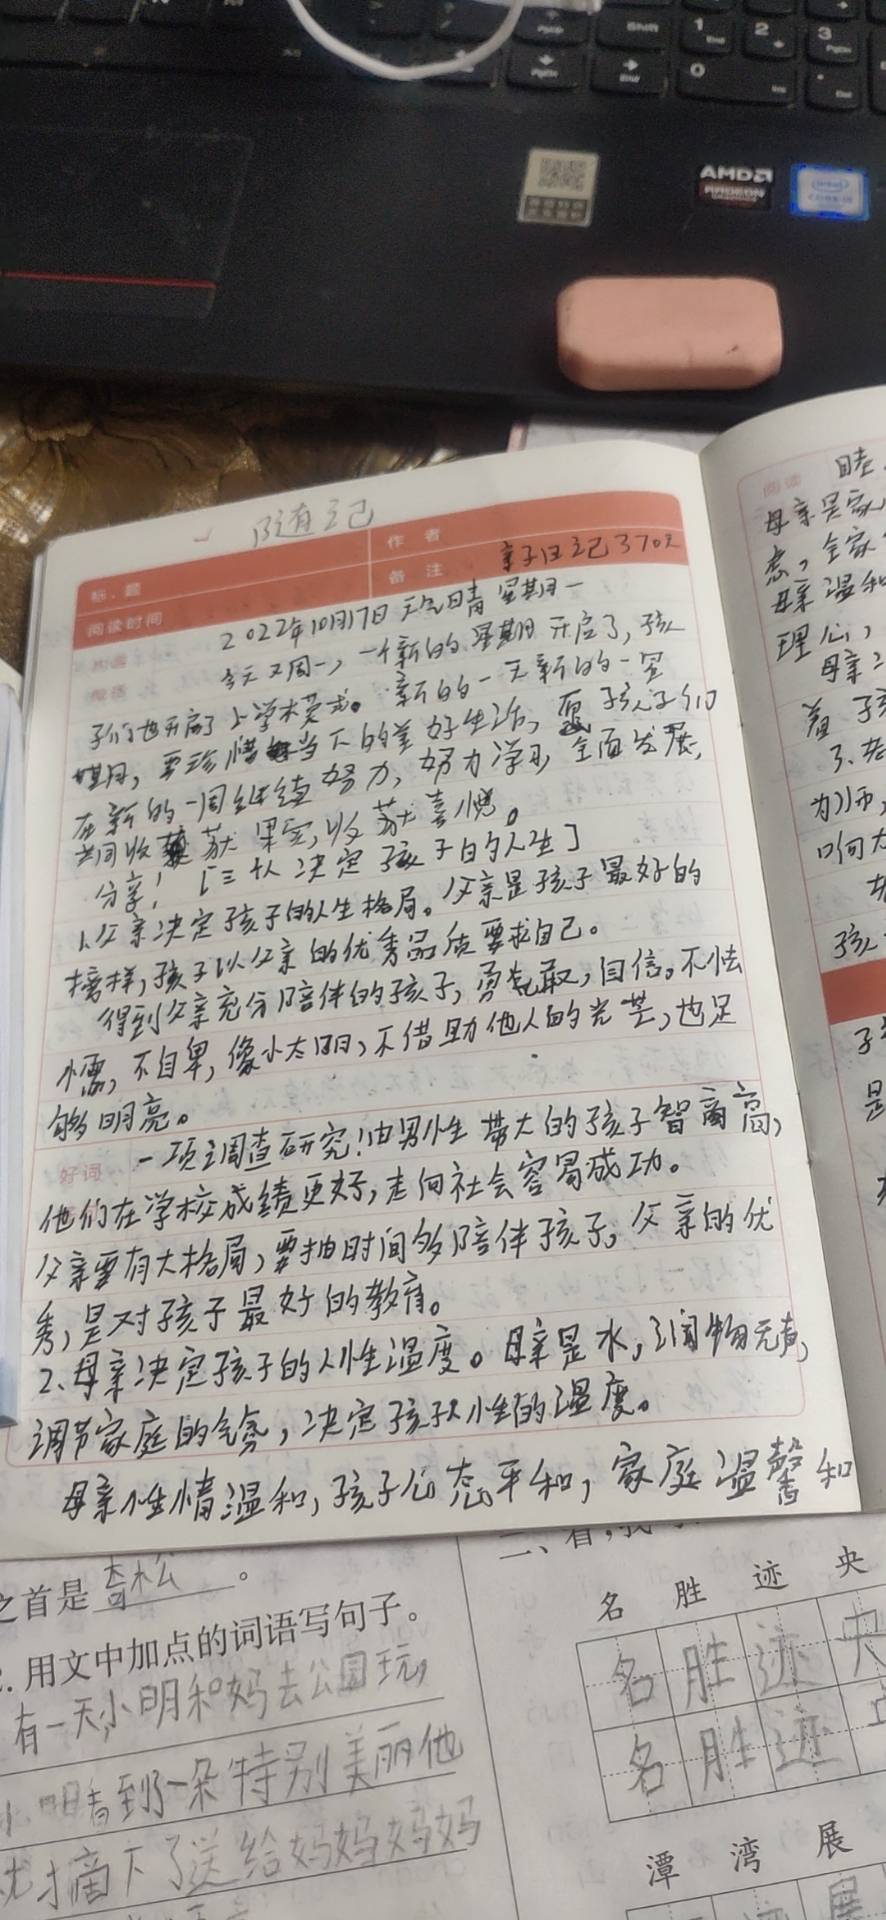 Shift
1
End
2
3
PgDn
PgUp
PgDn
End
0
Ins
Del
AMD
RADEON
intel
CORE i5
随记
标 题
作 者
阅读时间
备 注
亲子日记370天
2022年10月17日 天气晴 星期一
今天又周一，一个新的星期开启了，孩
子们也开启了上学模式。新的一天新的一星
期，要珍惜当下的美好生活，愿孩子们
在新的一周继续努力，努力学习，全面发展，
共同收获果实，收获喜悦。
分享！「三人决定孩子的人生」
1、父亲决定孩子的人生格局。父亲是孩子最好的
榜样，孩子以父亲的优秀品质要求自己。
得到父亲充分陪伴的孩子，勇敢，自信。不怯
懦，不自卑，像小太阳，不借助他人的光芒，也足
够明亮。
好词
一项调查研究！由男性带大的孩子智商高，
他们在学校成绩更好，走向社会容易成功。
父亲要有大格局，要抽时间多陪伴孩子。父亲的优
秀，是对孩子最好的教育。
2、母亲决定孩子的人性温度。母亲是水，润物无声，
调节家庭的气氛，决定孩子人性的温度。
母亲性情温和，孩子心态平和，家庭温馨和
阅读
睦
母亲是家
虑，全家
母亲温和
理心，
母亲
着孩
3、老
为师，
啊大
孩
子
是
之首是奇松。
用文中加点的词语写句子。
有一天，小明和妈去公园玩，
小明看到了一朵特别美丽他
就摘下了送给妈妈妈妈
二、看，我
名 胜 迹 央
名 胜 迹 央
名 胜 迹
潭 湾 展